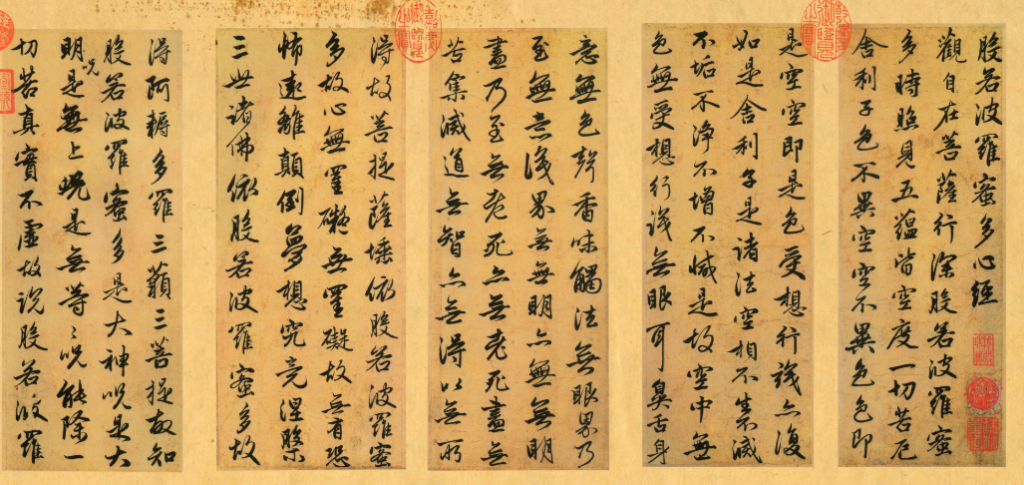 般若波羅蜜多心經
觀自在菩薩行深般若波羅蜜
多時照見五蘊皆空度一切苦厄
舍利子色不異空空不異色色即
是空空即是色受想行識亦復
如是舍利子是諸法空相不生滅
不垢不淨不增不減是故空中無
色無受想行識無眼耳鼻舌身
意無色聲香味觸法無眼界乃
至無意識界無無明亦無無明
盡乃至無老死亦無老死盡無
苦集滅道無智亦無得以無所
得故菩提薩埵依般若波羅蜜
多故心無罣礙無罣礙故無有恐
怖遠離顛倒夢想究竟涅槃
三世諸佛依般若波羅蜜多故
得阿耨多羅三藐三菩提故知
般若波羅蜜多是大神呪是大
明呪是無上呪是無等々呪能除一
切苦真實不虛故說般若波羅